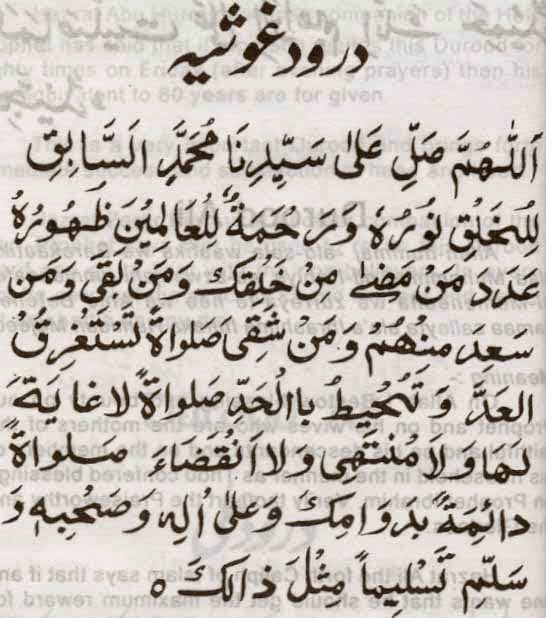 درود غوثیه
اَللّٰهُمَّ صَلِّ عَلٰی سَيِّدِنَا مُحَمَّدِ اۨلسَّابِقِ
لِلْخَلْقِ نُوْرُهٗ وَ رَحْمَةٌ لِّلْعَالَمِيْنَ ظُهُوْرُهٗ
عَدَدَ مَنْ مَّضٰی مِنْ خَلْقِكَ وَمَنْ بَقِیَ وَمَنْ
سَعِدَ مِنْهُمْ وَمَنْ شَقِیَ صَلٰواةً تَسْتَغْرِقُ
العَدَّ وَتُحِيْطُ بِاالْحَدِّ صَلٰواةً لَا غَايَةَ
لَهَا وَلَا مُنْتَهٰی وَلَا اَنْقَضَاءَ صَلٰواةً
دَائِمَةً بِدَوَامِكَ وَعَلٰی اٰلِهٖ وَصَحْبِهٖ وَ
سَلِّمْ تَسْلِيْماً مِثْلَ ذَالِكَ ه